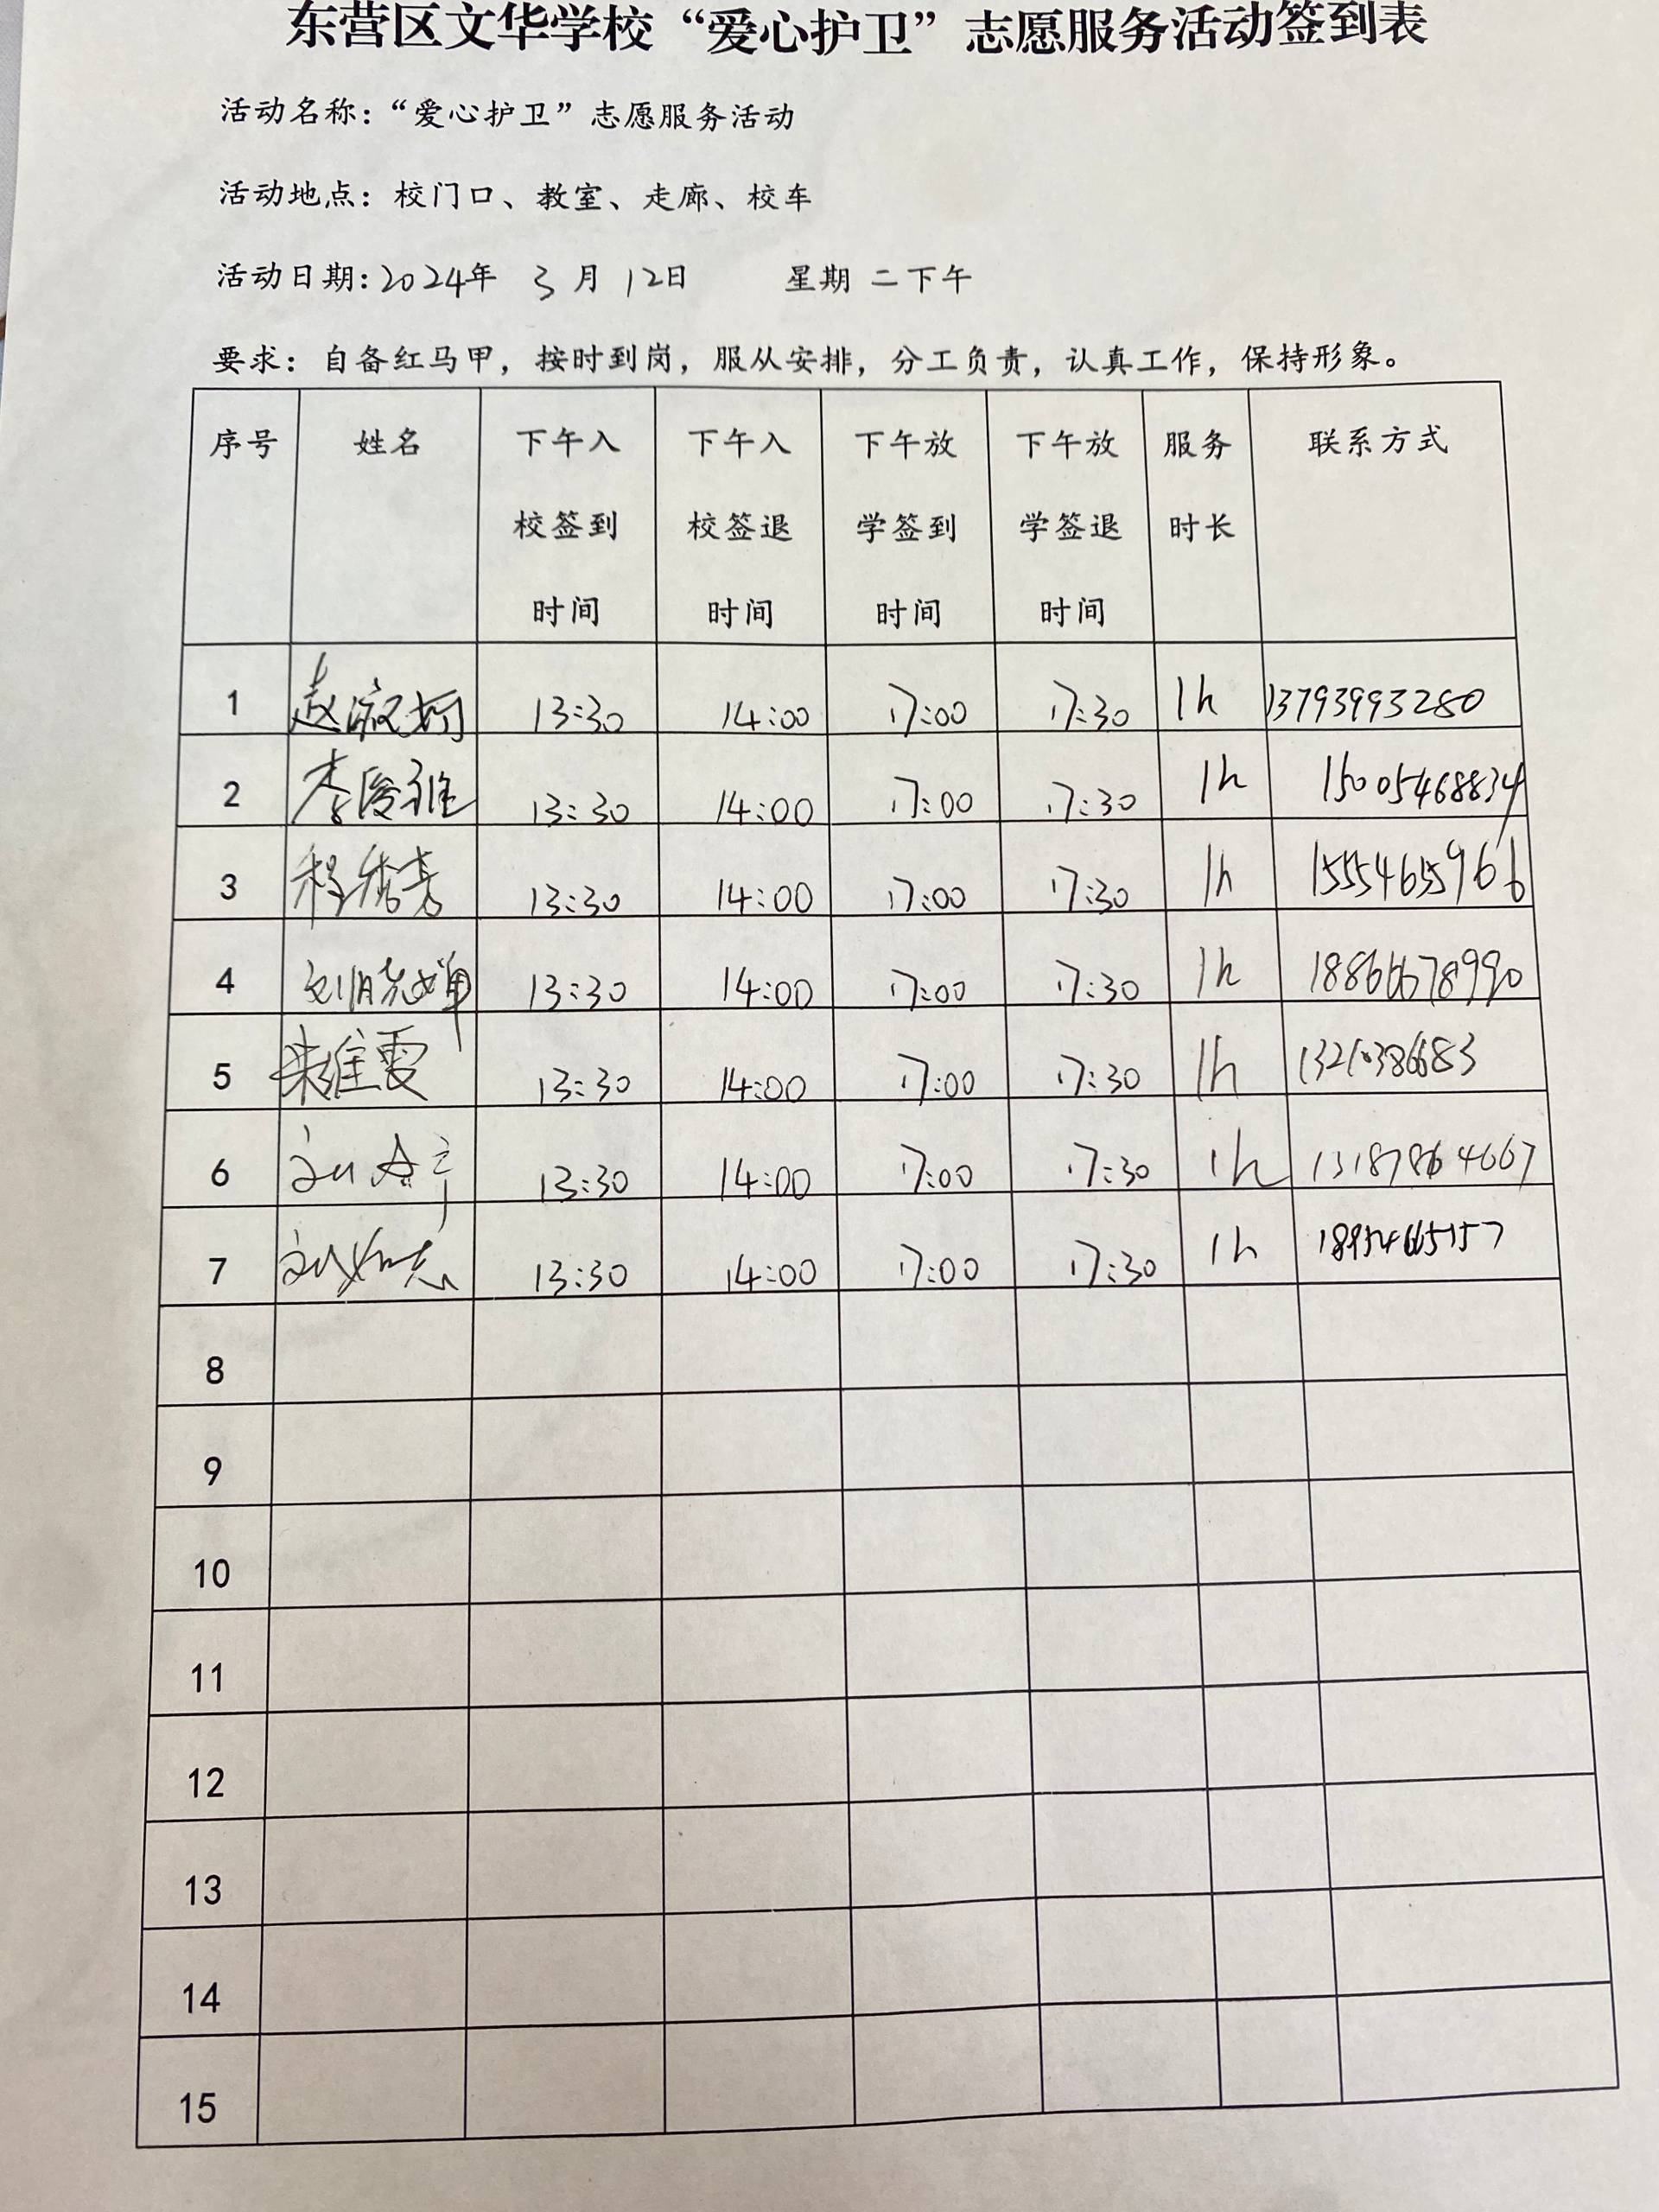 东营区文华学校“爱心护卫”志愿服务活动签到表
活动名称：“爱心护卫”志愿服务活动
活动地点：校门口、教室、走廊、校车
活动日期：2024年 3月 12日 星期 二下午
要求：自备红马甲，按时到岗，服从安排，分工负责，认真工作，保持形象。
序号 姓名 下午入校签到时间 下午入校签退时间 下午放学签到时间 下午放学签退时间 服务时长 联系方式
1 赵淑珂 13:30 14:00 17:00 17:30 1h 13793993280
2 李俊雅 13:30 14:00 17:00 17:30 1h 15005468834
3 程秀芳 13:30 14:00 17:00 17:30 1h 15554655966
4 刘晓婵 13:30 14:00 17:00 17:30 1h 18866678990
5 朱维霞 13:30 14:00 17:00 17:30 1h
6 13:30 14:00 17:00 17:30 1h 13187864667
7 13:30 14:00 17:00 17:30 1h 18954665157
8
9
10
11
12
13
14
15